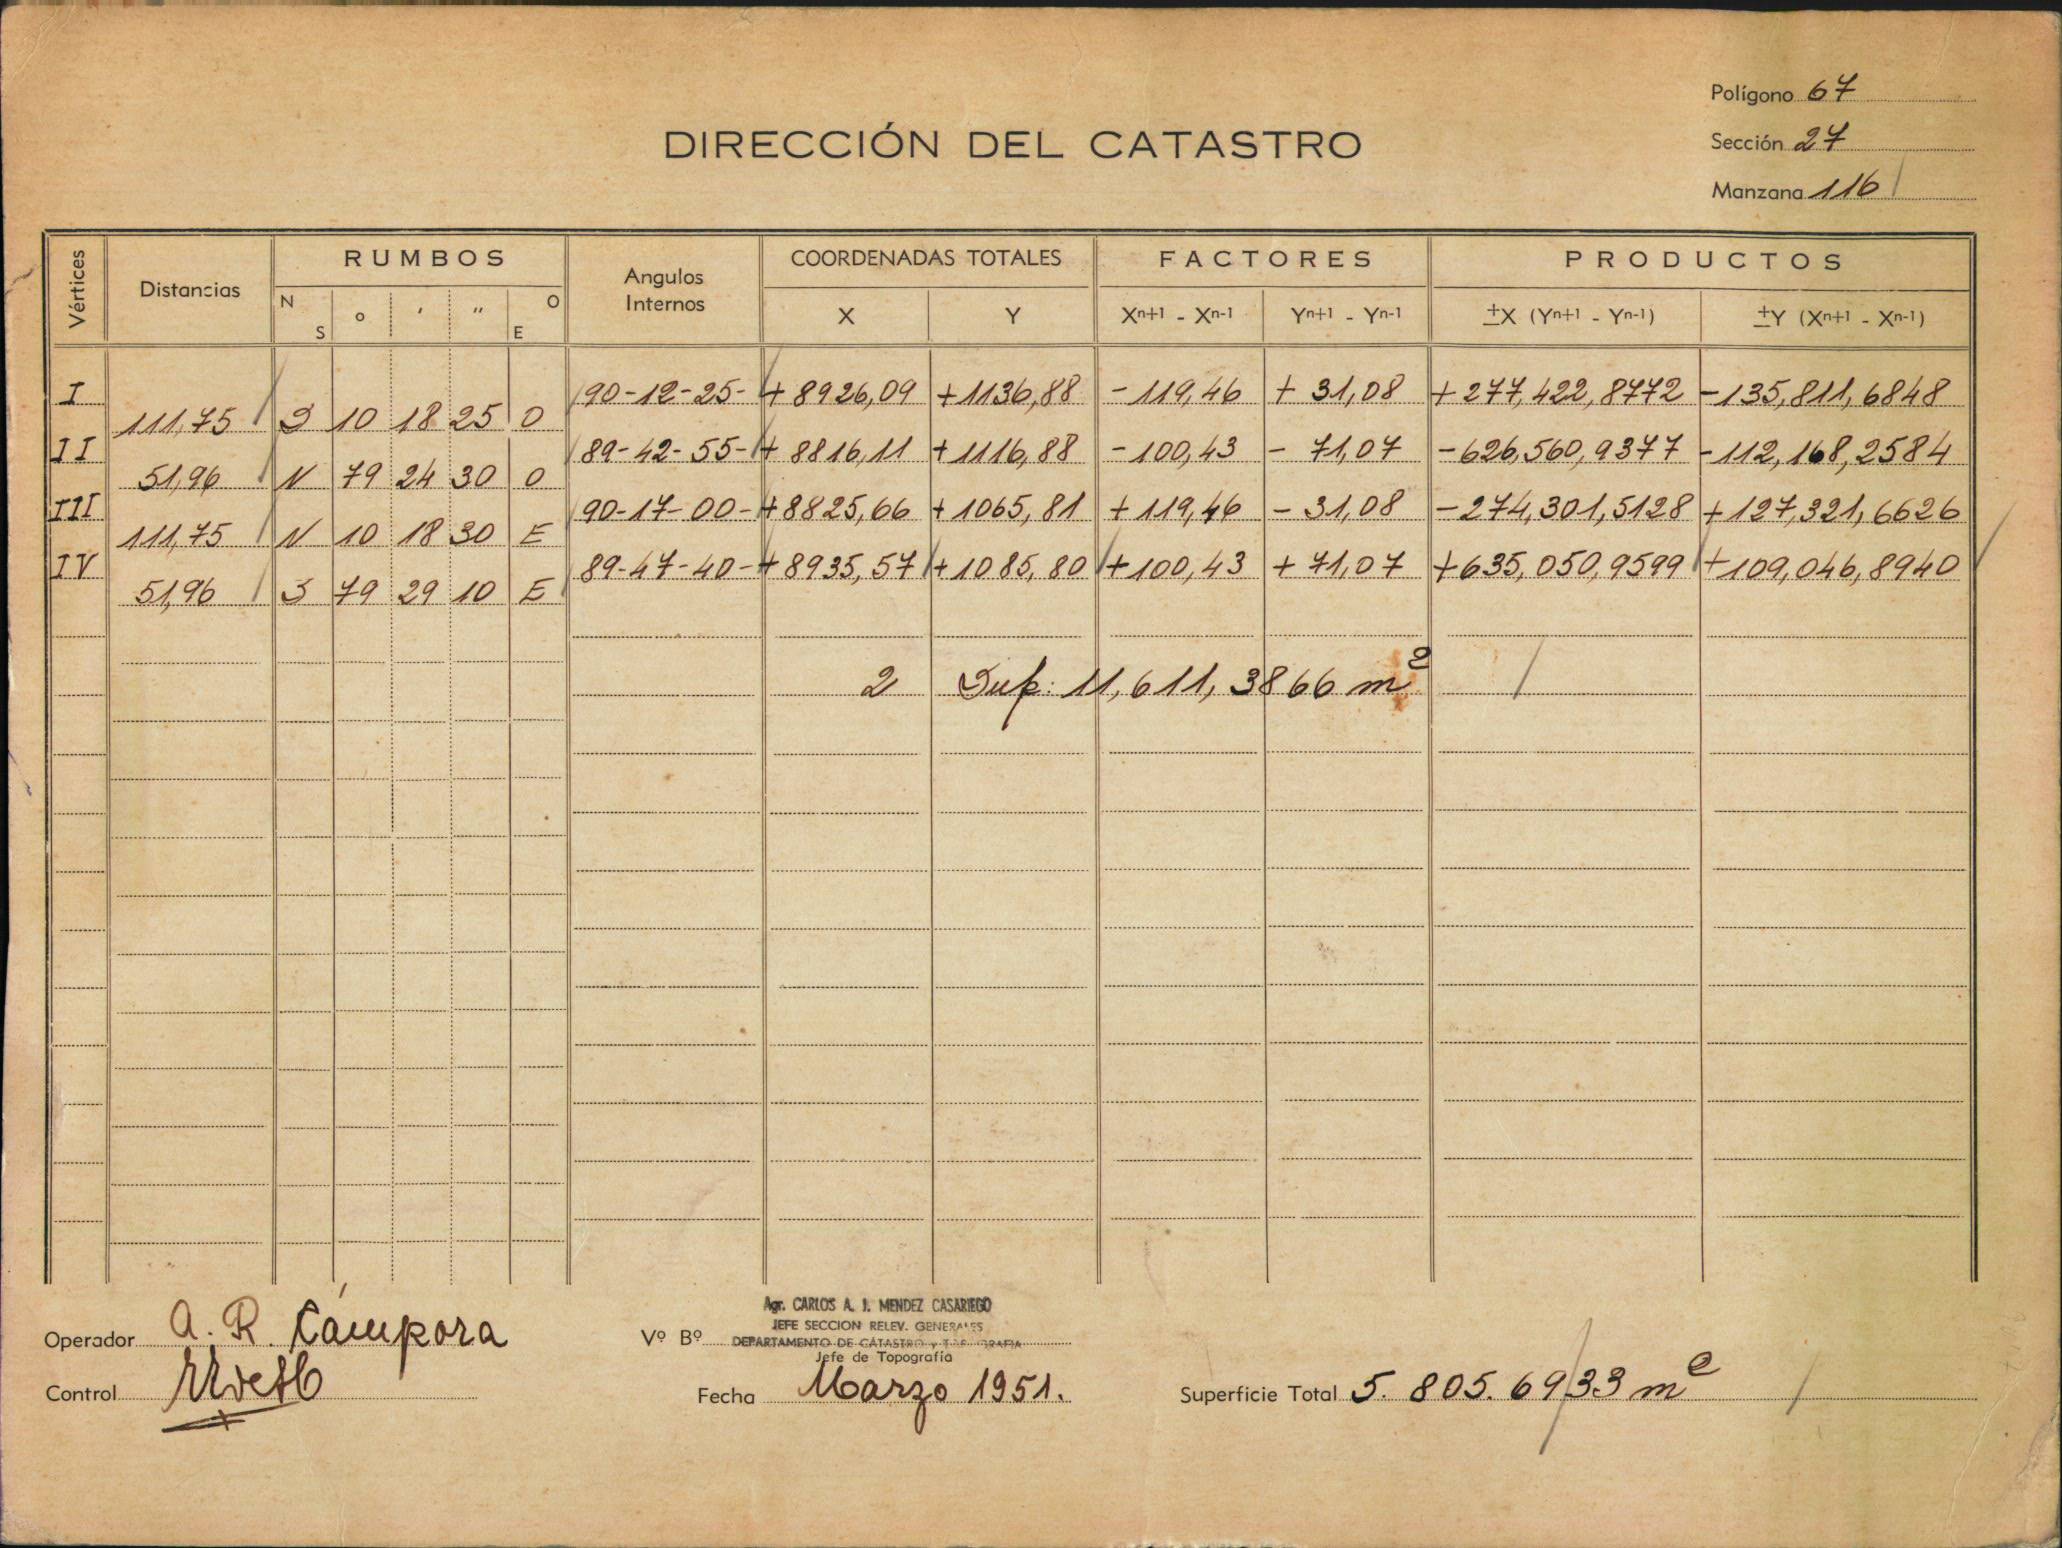 Polígono 67
DIRECCIÓN DEL CATASTRO
Sección 27
Manzana 116
Vértices Distancias RUMBOS Angulos Internos COORDENADAS TOTALES FACTORES PRODUCTOS
N S o ' " O E X Y Xn+1 - Xn-1 Yn+1 - Yn-1 ±X (Yn+1 - Yn-1) ±Y (Xn+1 - Xn-1)
I 90-12-25- +8926,09 +1136,88 -119,46 + 31,08 +277,422,8772 -135,811,6848
111,75 S 10 18 25 O
II 89-42-55- + 8816,11 +1116,88 -100,43 - 71,07 -626,560,9377 -112,168,2584
51,96 N 79 24 30 O
III 90-17-00- +8825,66 +1065,81 +119,46 - 31,08 -274,301,5128 +127,321,6626
111,75 N 10 18 30 E
IV 89-47-40- +8935,57 +1085,80 +100,43 + 71,07 +635,050,9599 +109,046,8940
51,96 S 79 29 10 E
2 Sup: 11,611,3866 m2
Agr. CARLOS A. J. MENDEZ CASARIEGO
JEFE SECCION RELEV. GENERALES
Operador A. R. Cámpora Vº Bº DEPARTAMENTO DE CATASTRO y
Jefe de Topografía
Control Fecha Marzo 1951. Superficie Total 5.805.6933 m2